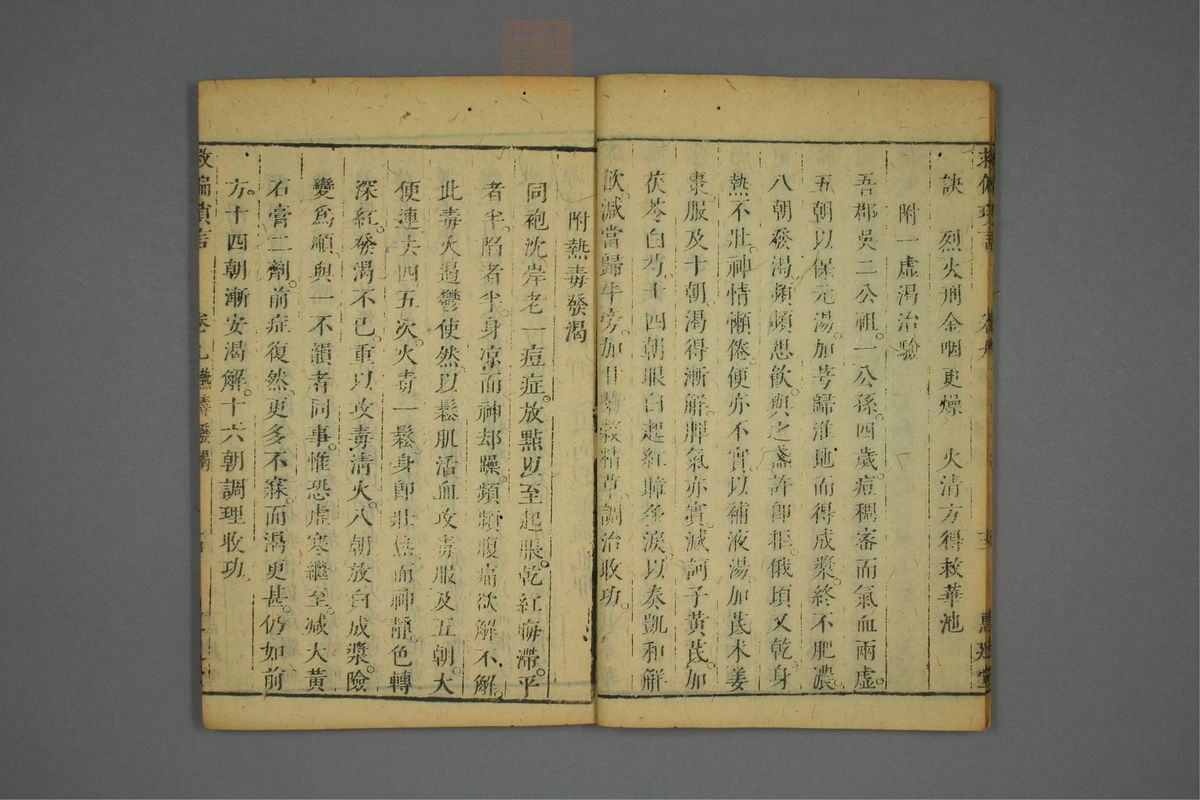 訣　烈火刑金咽更燥　火清方得救華池
附一虛渴治驗
吾郡吳二公祖一公孫四歲痘稠密而氣血兩虛
五朝以保元湯加芎歸淮地而得成漿終不肥濃
八朝發渴頻頻思飲與之盞許即拒俄頃又乾身
熱不壯神情懶倦便亦不實以補液湯加芪朮姜
棗服及十朝渴得漸解脾氣亦實減訶子黃芪加
茯苓白芍十四朝眼白起紅瞕多淚以奏凱和解
飲減當歸牛旁加甘菊穀精草調治收功
附熱毒發渴
同袍沈岸老一痘症放點以至起脹乾紅晦滯平
者半陷者半身凉而神却躁頻頻腹痛欲解不解
此毒火遏鬱使然以鬆肌活血攻毒服及五朝大
便連去四五次火毒一鬆身即壯熱而神靜色轉
深紅發渴不已重以攻毒清火八朝放白成漿險
變爲順與一不韻者同事惟恐虛寒繼至減大黃
石膏二劑前症復然更多不寐而渴更甚仍如前
方十四朝漸安渴解十六朝調理收功
救偏瑣言　卷九